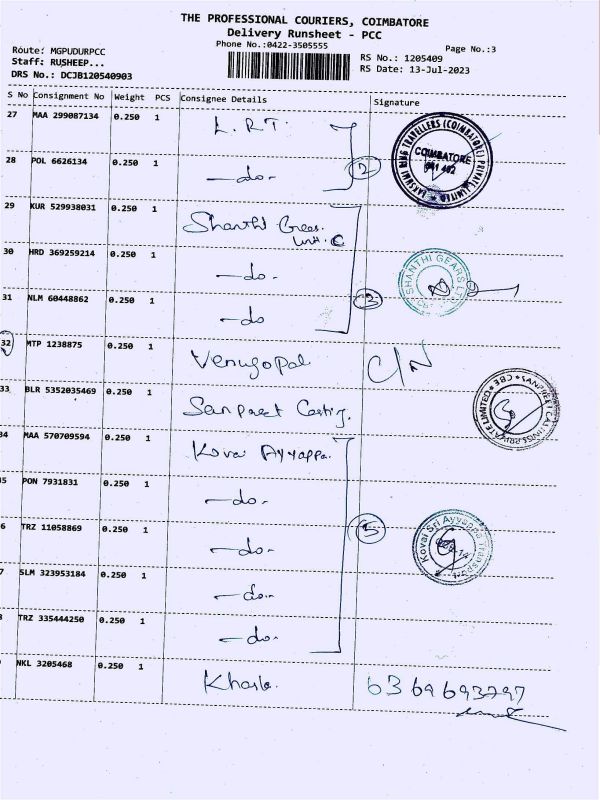 THE PROFESSIONAL COURIERS, COIMBATORE
Delivery Runsheet - PCC
Phone No.:0422-3505555
Page No.:3
Route: MGPUDURPCC
Staff: RUSHEEP...
DRS No.: DCJB120540903
RS No.: 1205409
RS Date: 13-Jul-2023
S No Consignment No Weight PCS Consignee Details Signature
27 MAA 299087134 0.250 1 L.R.T.
LAKSHMI RING TRAVELLERS (COIMBATORE) PRIVATE LIMITED
COIMBATORE
641 402
28 POL 6626134 0.250 1 -do-
2
29 KUR 529938031 0.250 1 Shanthi Gears.
Unit. C
30 HRD 369259214 0.250 1 -do-
SHANTHI GEARS
31 NLM 60448862 0.250 1 -do
3
32 MTP 1238875 0.250 1 Venugopal C/N
33 BLR 5352035469 0.250 1 Sanpreet Casting.
SANPREET CASTINGS PRIVATE LIMITED * CBE *
34 MAA 570709594 0.250 1 Kovai Ayyappa.
5 PON 7931831 0.250 1 -do-
6 TRZ 11058869 0.250 1 -do-
5
Kovai Sri Ayyappa Transport
7 SLM 323953184 0.250 1 -do-
8 TRZ 335444250 0.250 1 -do-
NKL 3205468 0.250 1 6369693797